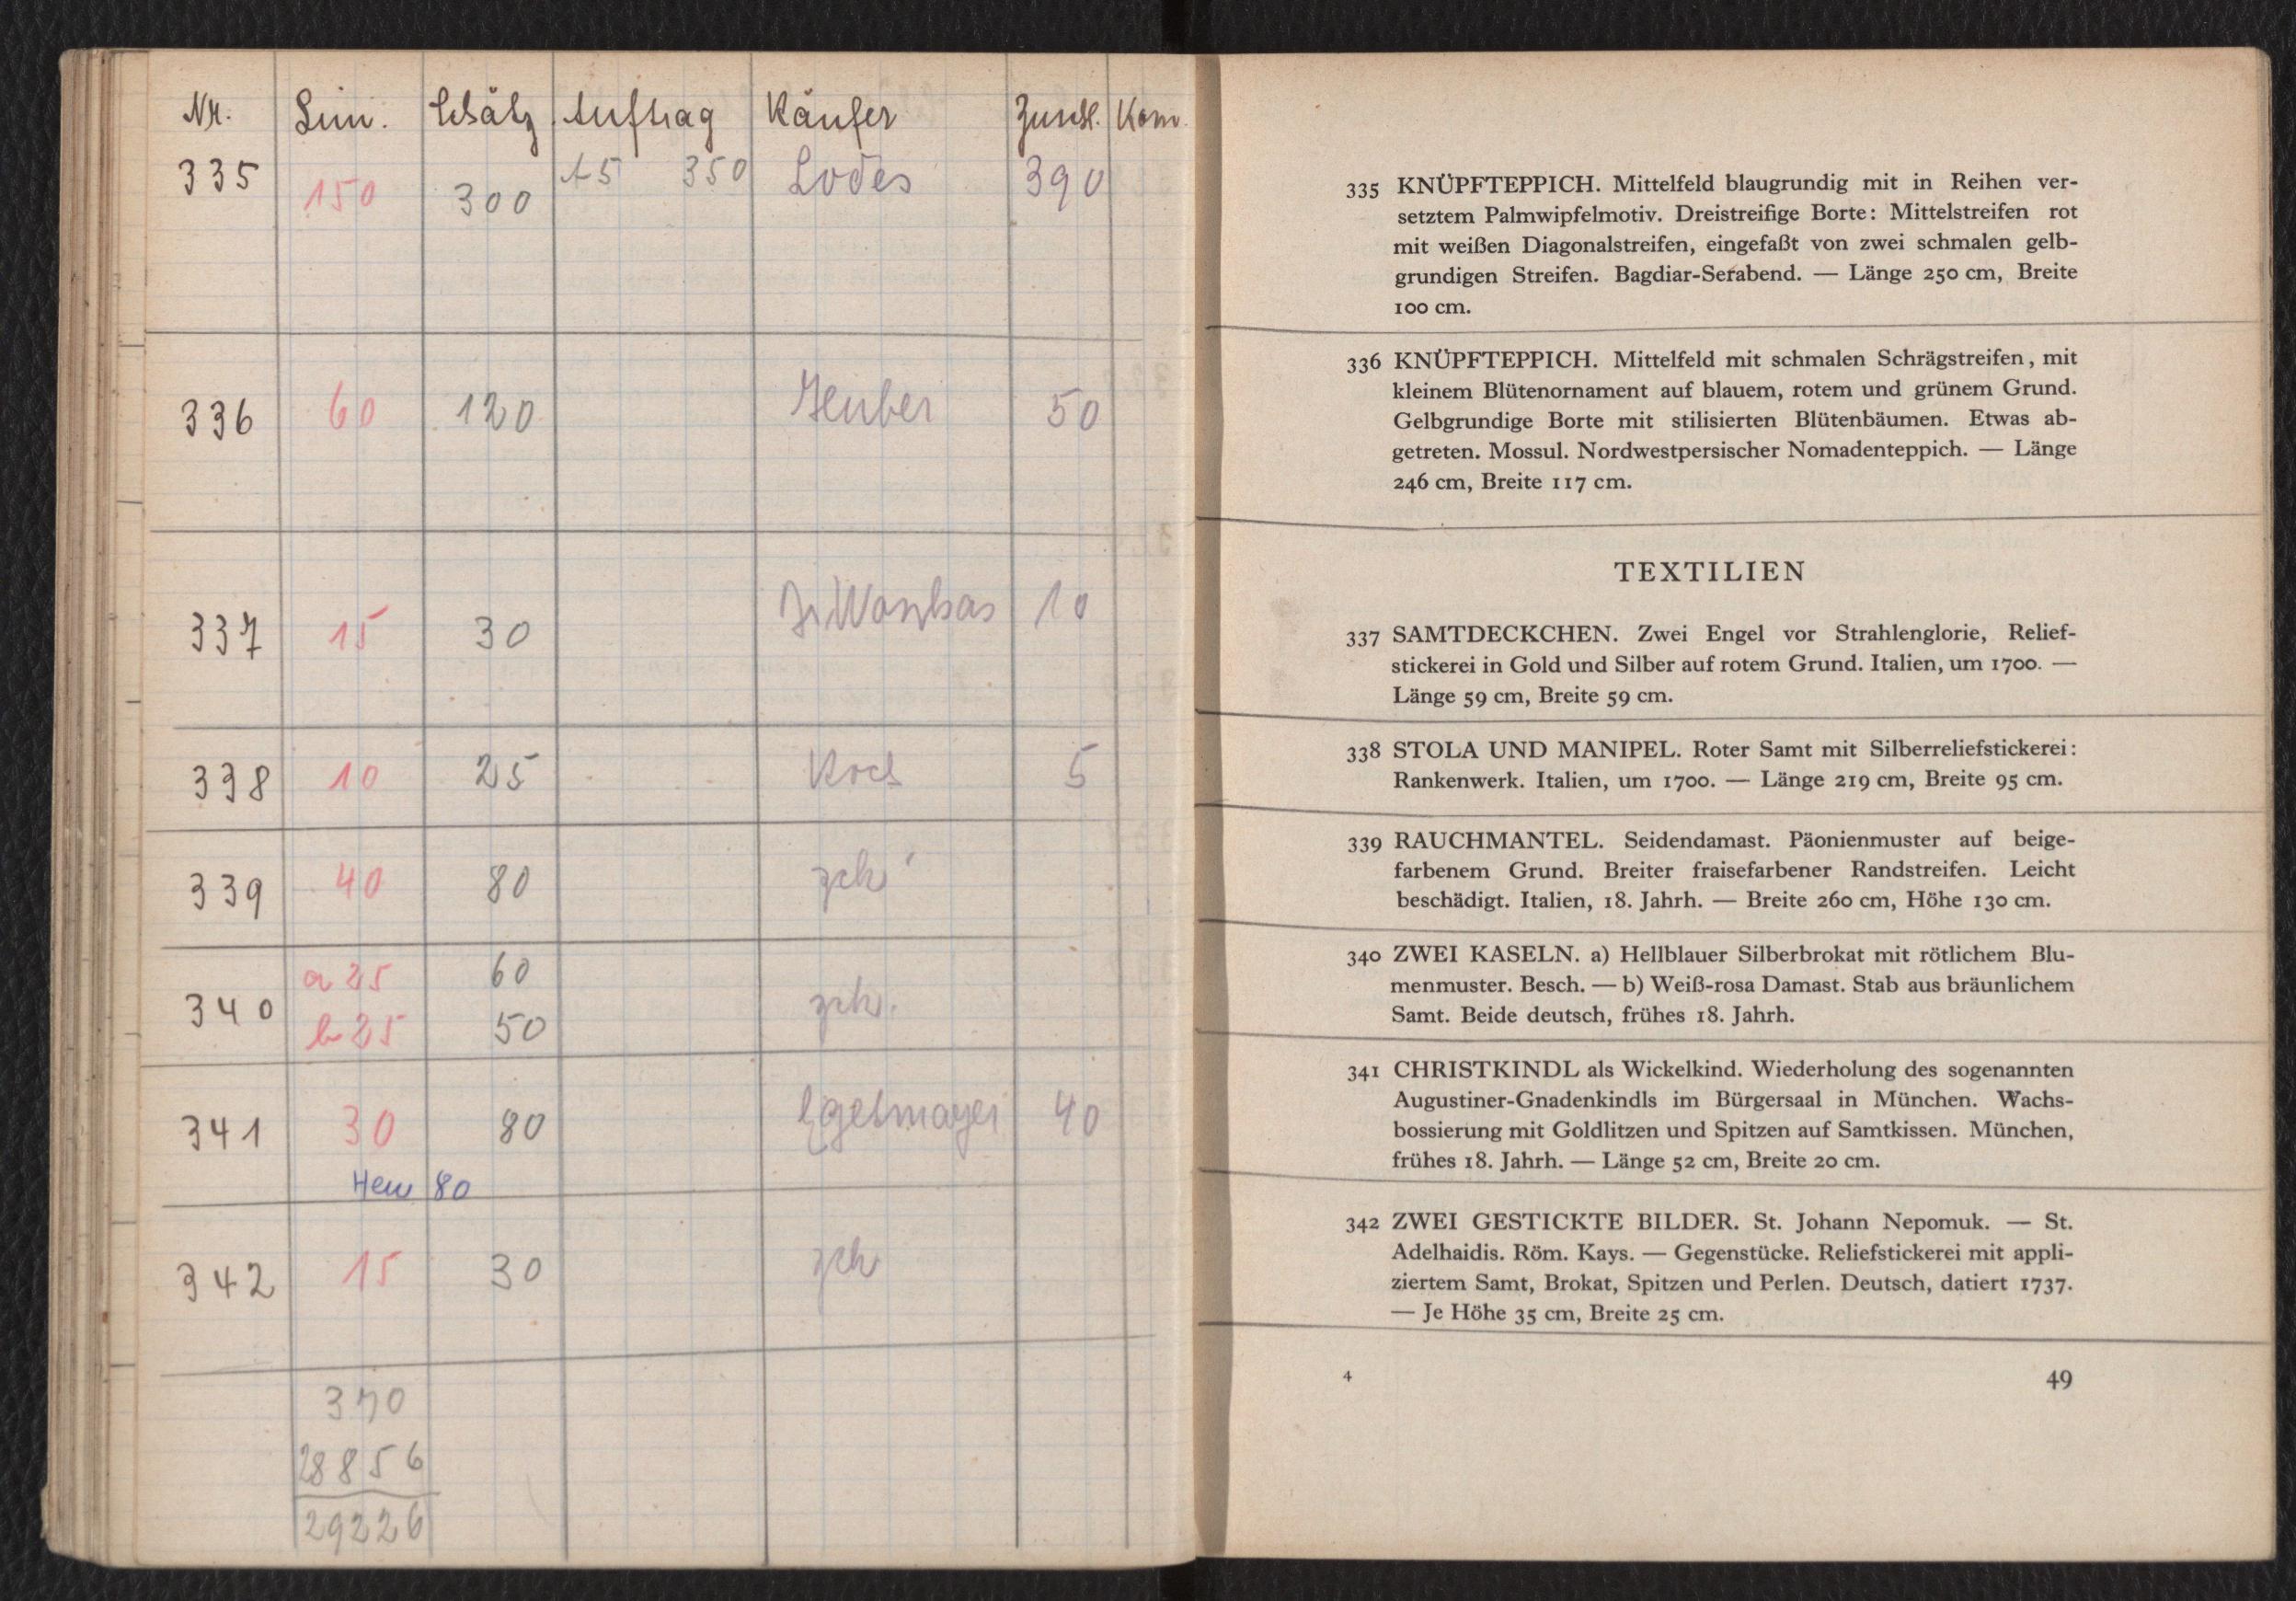 Nr. Lim. Schätz Auftrag Käufer Zuschl. Kom.
335 150 300 A5 350 Lodes 390
336 60 120 Heuber 50
337 15 30 10
338 10 25 Koch 5
339 40 80 zck
340 a 25 60 zck.
b 25 50
341 30 80 Egetmayer 40
Hew 80
342 15 30 zck
370
28856
29226
335 KNÜPFTEPPICH. Mittelfeld blaugrundig mit in Reihen ver-
setztem Palmwipfelmotiv. Dreistreifige Borte: Mittelstreifen rot
mit weißen Diagonalstreifen, eingefaßt von zwei schmalen gelb-
grundigen Streifen. Bagdiar-Serabend. — Länge 250 cm, Breite
100 cm.
336 KNÜPFTEPPICH. Mittelfeld mit schmalen Schrägstreifen, mit
kleinem Blütenornament auf blauem, rotem und grünem Grund.
Gelbgrundige Borte mit stilisierten Blütenbäumen. Etwas ab-
getreten. Mossul. Nordwestpersischer Nomadenteppich. — Länge
246 cm, Breite 117 cm.
TEXTILIEN
337 SAMTDECKCHEN. Zwei Engel vor Strahlenglorie, Relief-
stickerei in Gold und Silber auf rotem Grund. Italien, um 1700. —
Länge 59 cm, Breite 59 cm.
338 STOLA UND MANIPEL. Roter Samt mit Silberreliefstickerei:
Rankenwerk. Italien, um 1700. — Länge 219 cm, Breite 95 cm.
339 RAUCHMANTEL. Seidendamast. Päonienmuster auf beige-
farbenem Grund. Breiter fraisefarbener Randstreifen. Leicht
beschädigt. Italien, 18. Jahrh. — Breite 260 cm, Höhe 130 cm.
340 ZWEI KASELN. a) Hellblauer Silberbrokat mit rötlichem Blu-
menmuster. Besch. — b) Weiß-rosa Damast. Stab aus bräunlichem
Samt. Beide deutsch, frühes 18. Jahrh.
341 CHRISTKINDL als Wickelkind. Wiederholung des sogenannten
Augustiner-Gnadenkindls im Bürgersaal in München. Wachs-
bossierung mit Goldlitzen und Spitzen auf Samtkissen. München,
frühes 18. Jahrh. — Länge 52 cm, Breite 20 cm.
342 ZWEI GESTICKTE BILDER. St. Johann Nepomuk. — St.
Adelhaidis. Röm. Kays. — Gegenstücke. Reliefstickerei mit appli-
ziertem Samt, Brokat, Spitzen und Perlen. Deutsch, datiert 1737.
— Je Höhe 35 cm, Breite 25 cm.
4 49